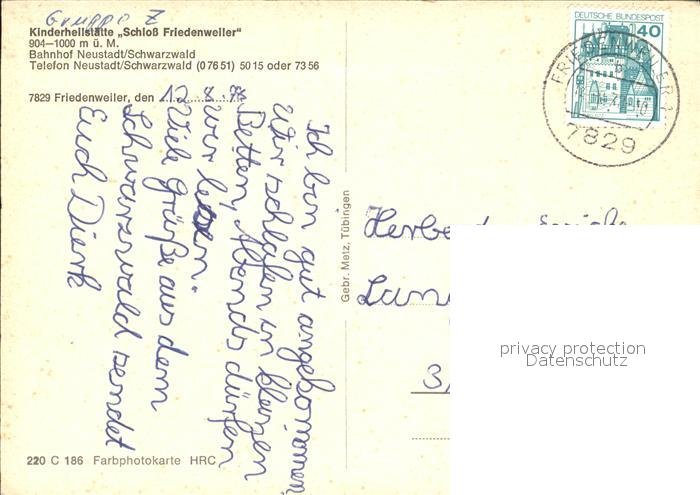 Gruppe Z
Kinderheilstätte „Schloß Friedenweiler“
904—1000 m ü. M.
Bahnhof Neustadt/Schwarzwald
Telefon Neustadt/Schwarzwald (07651) 5015 oder 7356
7829 Friedenweiler, den 12. 8. 78
Ich bin gut angekommen.
Wir schlafen in kleinen
Betten, Abends dürfen
wir lesen.
Viele Grüße aus dem
Schwarzwald sendet
Euch Dierk
220 C 186 Farbphotokarte HRC
Gebr. Metz, Tübingen
DEUTSCHE BUNDESPOST
40
7829
privacy protection
Datenschutz